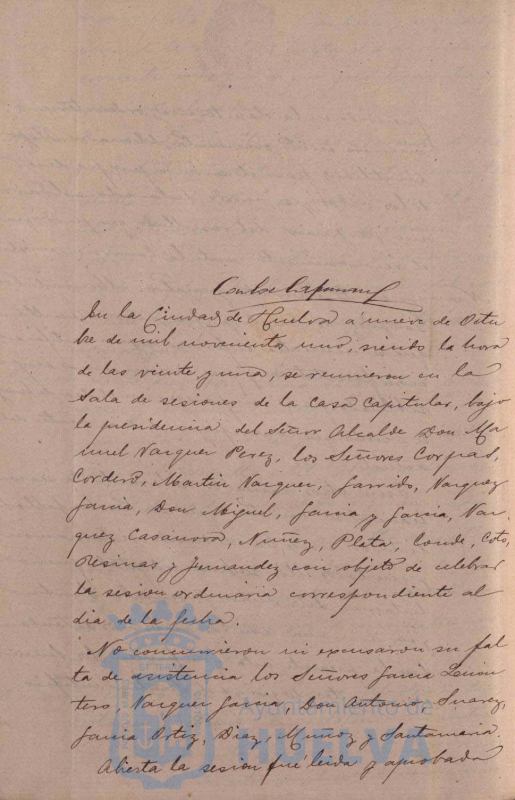 En la Ciudad de Huelva a nueve de Octu
bre de mil novecientos uno, siendo la hora
de las veinte y una, se reunieron en la
Sala de sesiones de la Casa Capitular, bajo
la presidencia del Señor Alcalde Don Ma
nuel Vazquez Perez, los Señores Corpas,
Cordero, Martin Vazquez, Garrido, Vazquez
Garcia, Don Miguel, Garcia y Garcia, Vaz
quez Casanova, Nuñez, Plata, Conde, Coto,
Resinas y Fernandez con objeto de celebrar
la sesion ordinaria correspondiente al
dia de la fecha.
No concurrieron ni excusaron su fal
ta de asistencia los Señores Garcia
Vazquez Garcia, Don Antonio, Suarez,
Garcia Ortiz, Diaz, Muñoz y Santamaria.
Abierta la sesion fué leida y aprobada
Ayuntamiento de
HUELVA